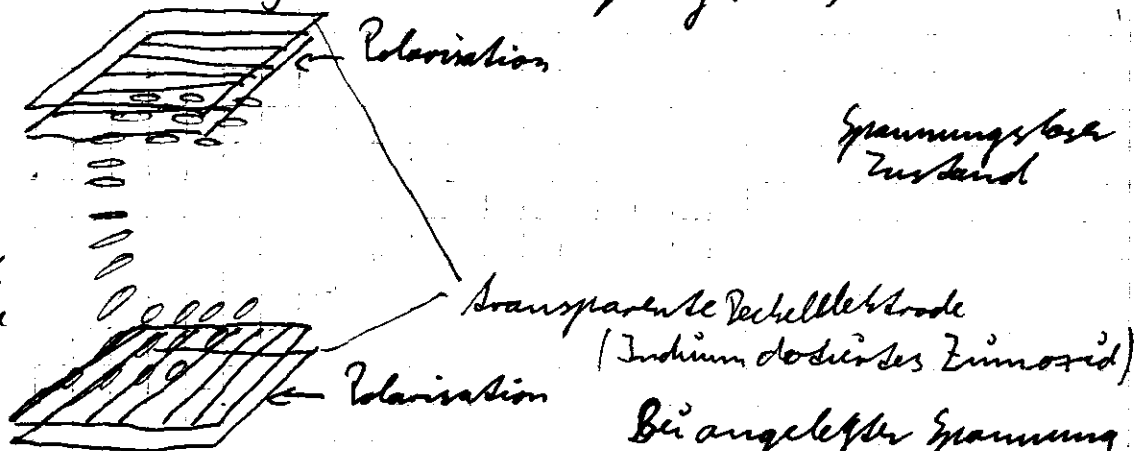 Polarisation
Spannungsloser
Zustand
transparente Deckelektrode
(Indium dotiertes Zinnoxid)
Polarisation
Bei angelegter Spannung